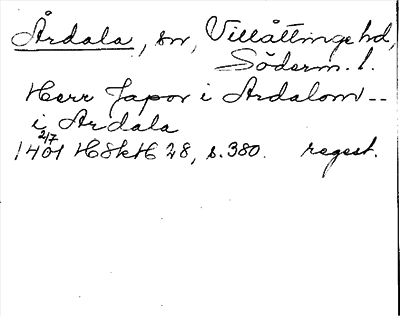 Årdala, sn, Villåttinge hd,
Söderm. l.
Herr Japor i Ardalom --
i Ardala
2/7
1401 HSkH 28, s. 380. regest.